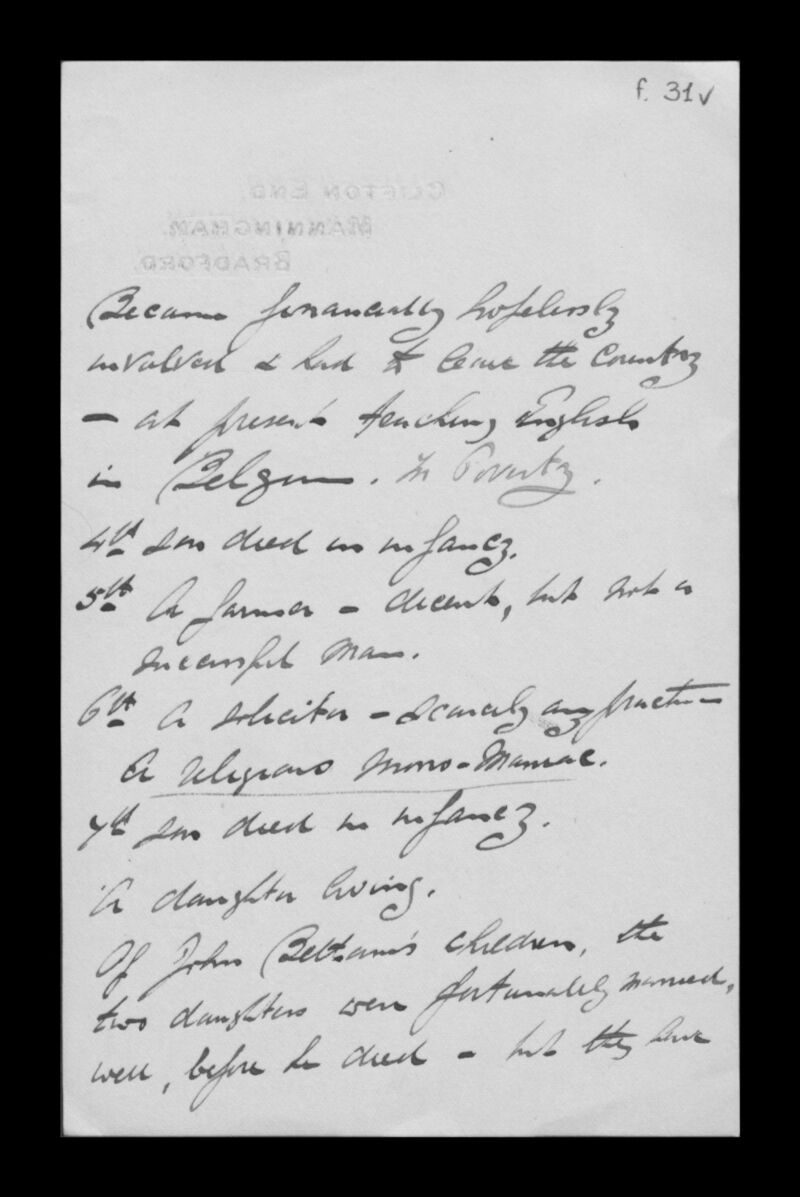 f. 31v
CLIFTON END.
MANNINGHAM.
BRADFORD.
Became financially hopelessly
involved & had to leave the Country
– at present teaching English
in Belgium. In Poverty.
4th Son died in infancy.
5th A farmer – decent, but not a
successful man.
6th A solicitor – scarcely any practice
A religious mono-maniac.
7th Son died in infancy.
A daughter living.
Of John Beltham's children, the
two daughters were fortunately married,
well, before he died – but they have